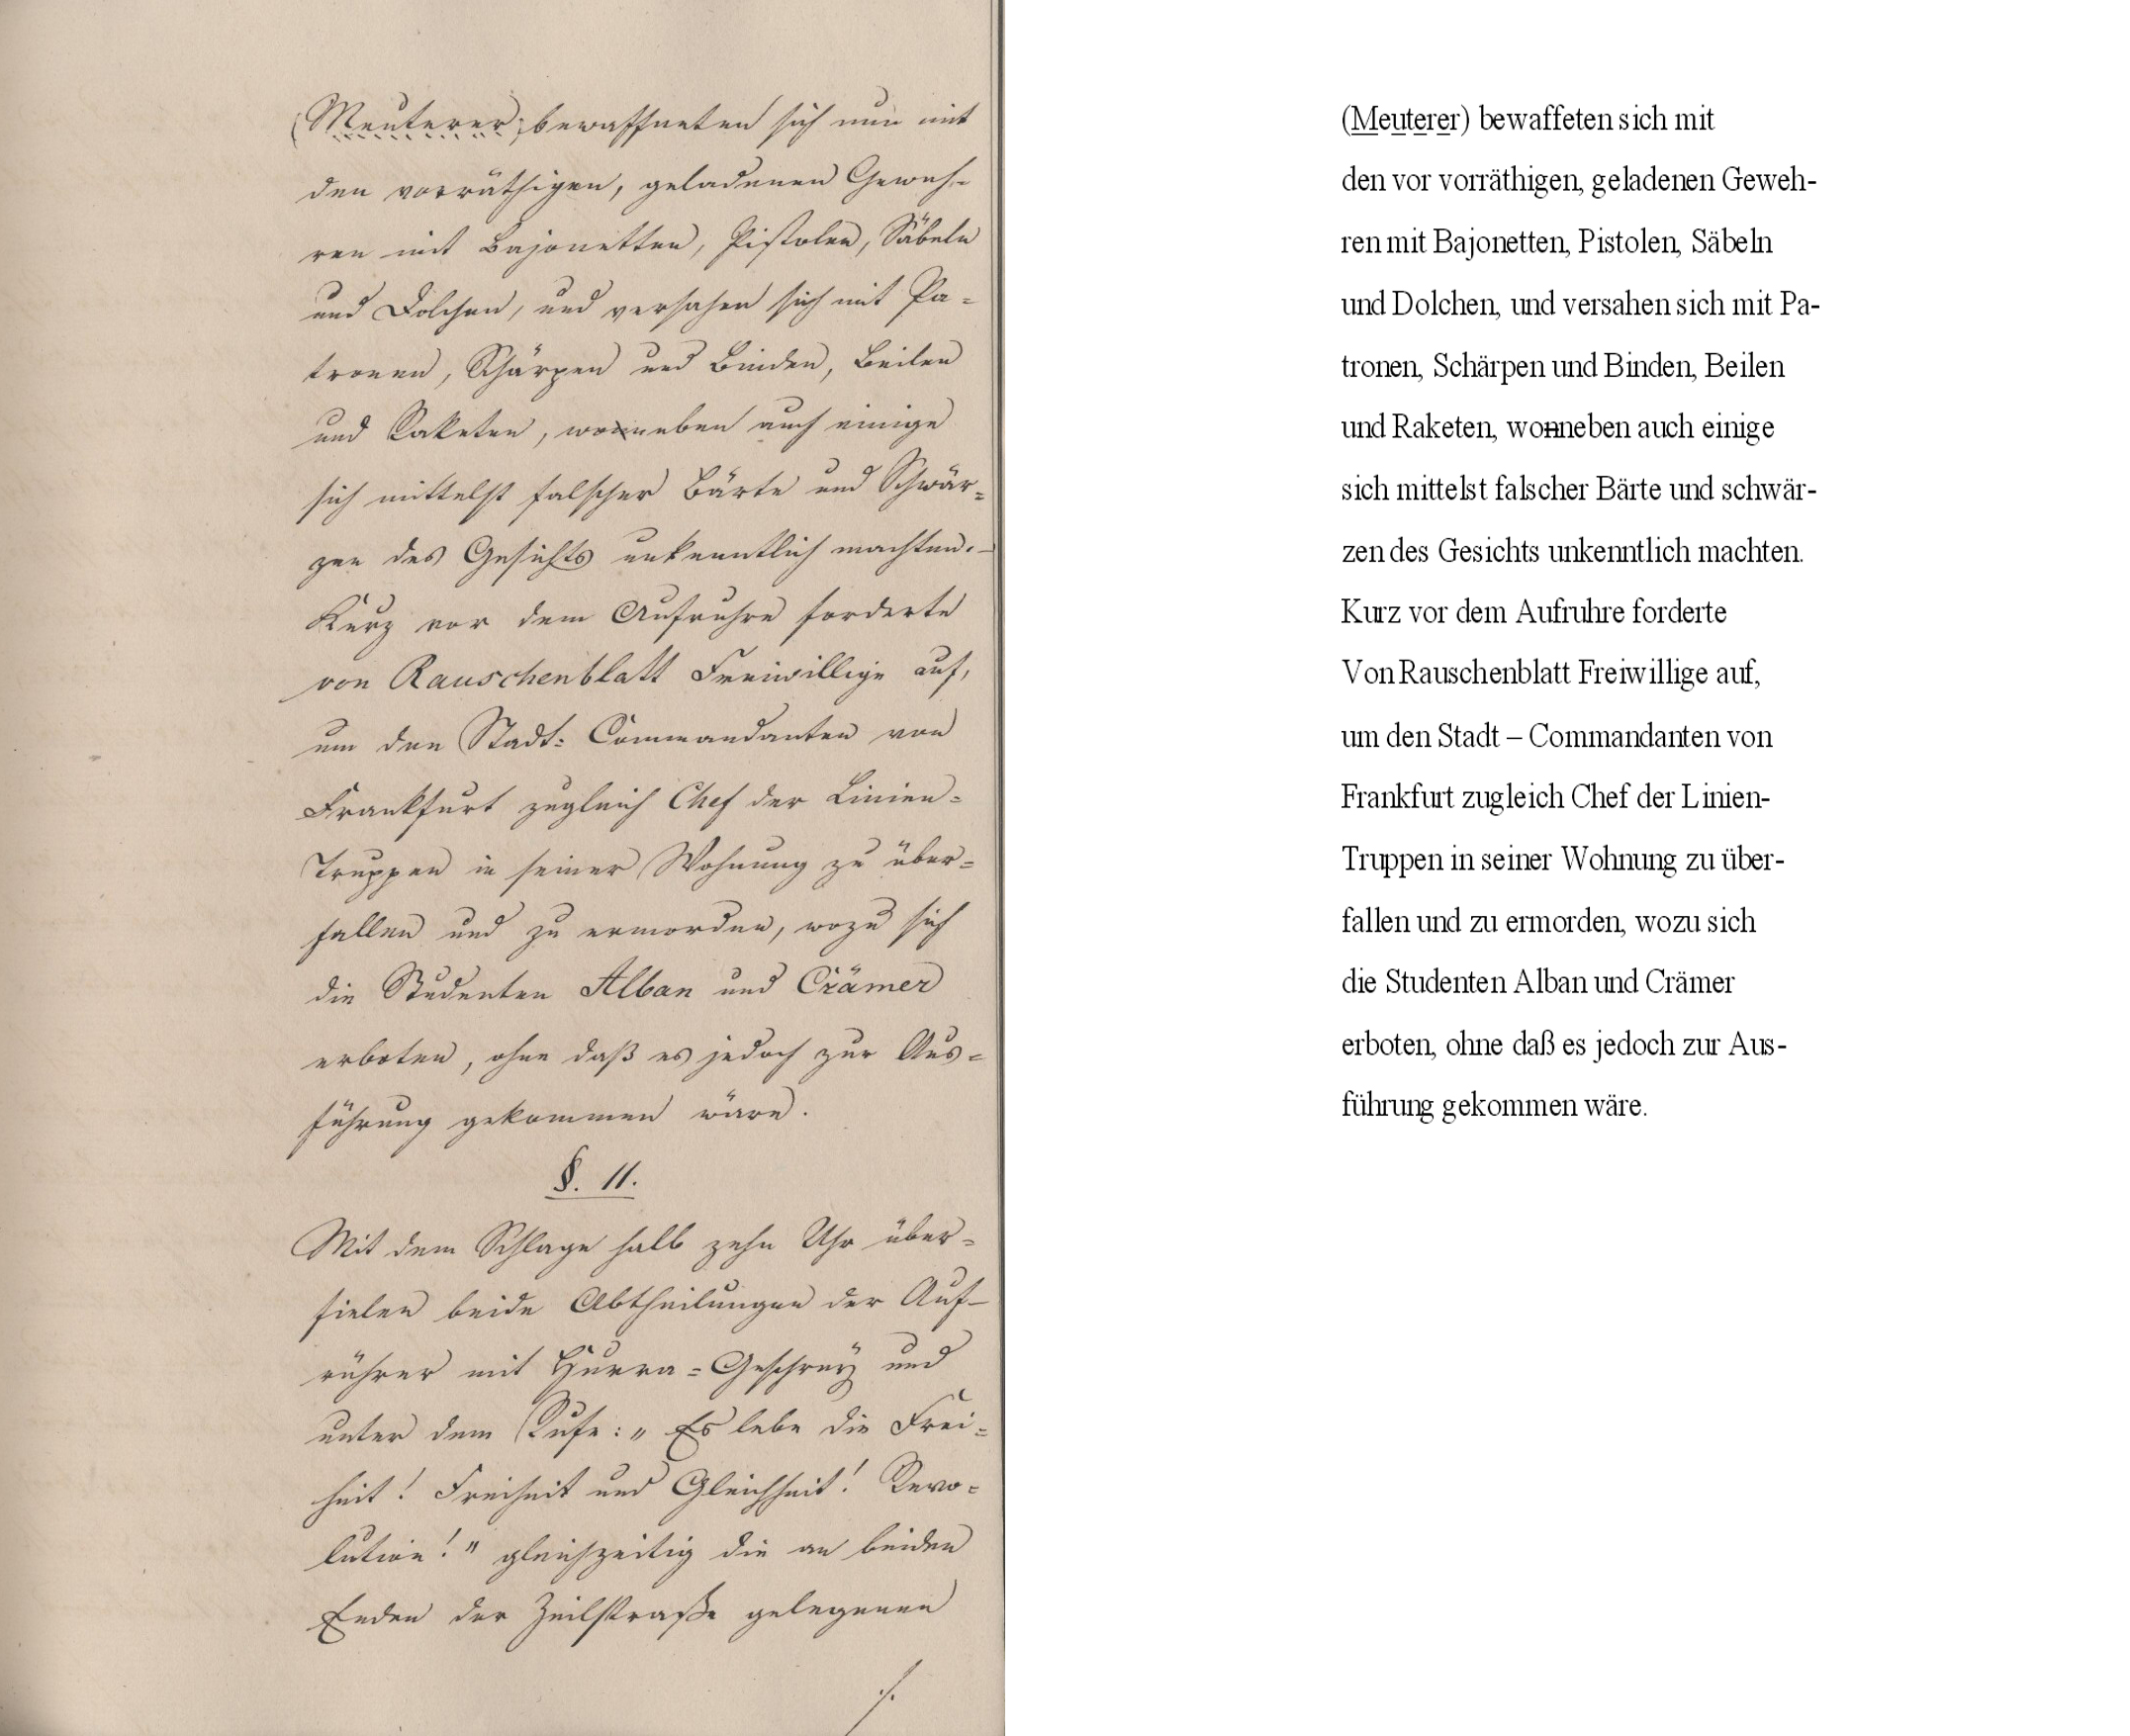 (Meuterer) bewaffneten sich nun mit
den vorräthigen, geladenen Geweh-
ren mit Bajonetten, Pistolen, Säbeln
und Dolchen, und versahen sich mit Pa-
tronen, Schärpen und Binden, Beilen
und Raketen, wonneben auch einige
sich mittelst falscher Bärte und Schwär-
zen des Gesichts unkenntlich machten. –
Kurz vor dem Aufruhre forderte
von Rauschenblatt Freiwillige auf,
um den Stadt-Commandanten von
Frankfurt zugleich Chef der Linien-
Truppen in seiner Wohnung zu über-
fallen und zu ermorden, wozu sich
die Studenten Alban und Crämer
erboten, ohne daß es jedoch zur Aus-
führung gekommen wäre.
§. 11.
Mit dem Schlage halb zehn Uhr über-
fielen beide Abtheilungen der Auf-
rührer mit Hurra-Geschrey und
unter dem Rufe: „Es lebe die Frei-
heit! Freiheit und Gleichheit! Revo-
lution!" gleichzeitig die an beiden
Enden der Zeilstraße gelegenen
./.
(Meuterer) bewaffeten sich mit
den vor vorräthigen, geladenen Geweh-
ren mit Bajonetten, Pistolen, Säbeln
und Dolchen, und versahen sich mit Pa-
tronen, Schärpen und Binden, Beilen
und Raketen, wonneben auch einige
sich mittelst falscher Bärte und schwär-
zen des Gesichts unkenntlich machten.
Kurz vor dem Aufruhre forderte
Von Rauschenblatt Freiwillige auf,
um den Stadt – Commandanten von
Frankfurt zugleich Chef der Linien-
Truppen in seiner Wohnung zu über-
fallen und zu ermorden, wozu sich
die Studenten Alban und Crämer
erboten, ohne daß es jedoch zur Aus-
führung gekommen wäre.